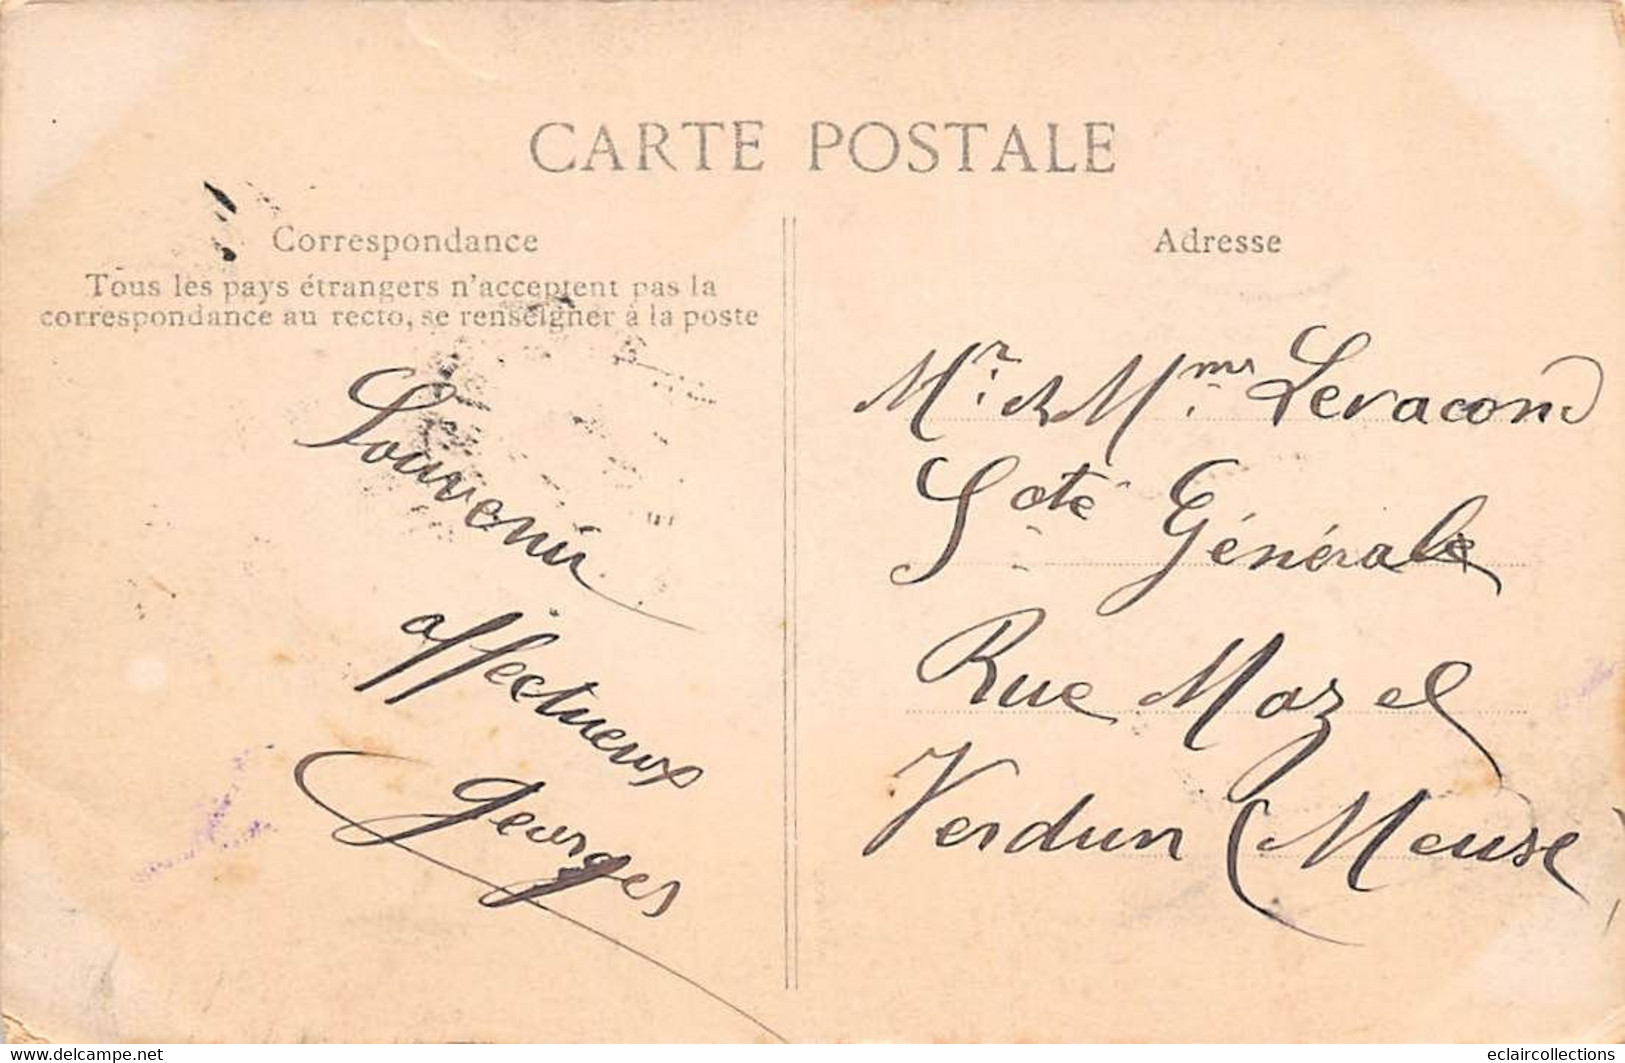 CARTE POSTALE
Correspondance
Tous les pays étrangers n'acceptent pas la
correspondance au recto, se renseigner à la poste
Souvenir
affectueux
Georges
Adresse
Mr & Mme Levacond
Soté Générale
Rue Mazel
Verdun (Meuse)
https://www.delcampe.net
eclaircollections